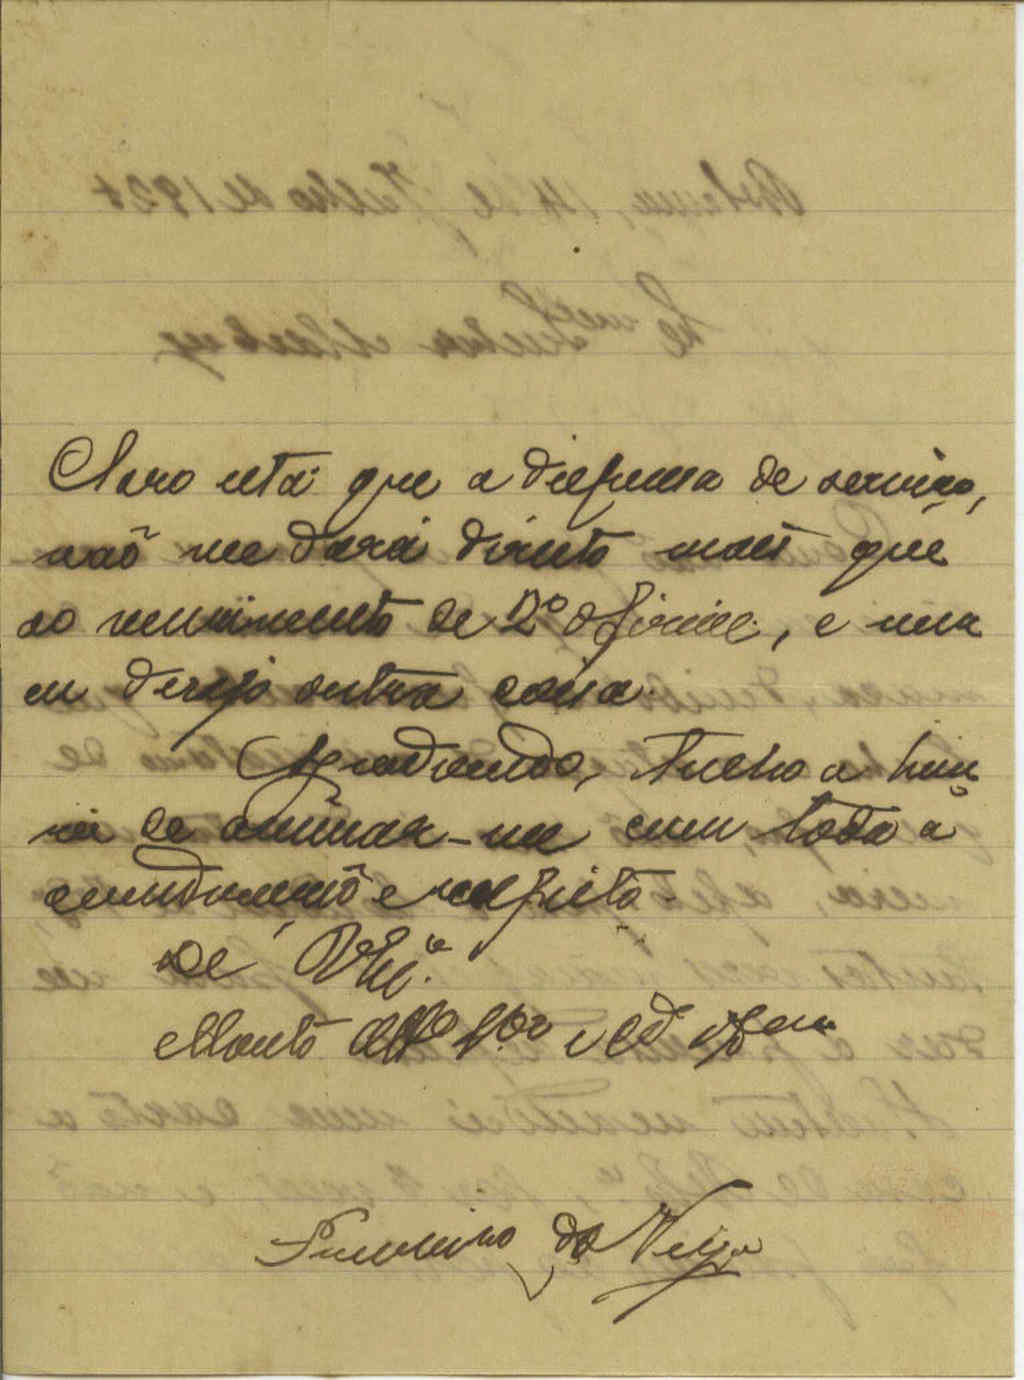 Claro está que a dispensa de serviço,
não me dará direito mais que
ao vencimento de 2º official, e nem
eu desejo outra coisa.
Agradecendo, tenho a hon
ra de assinar-me com toda a
consideração e respeito
De V. Excia
Muito Attº
da Veiga